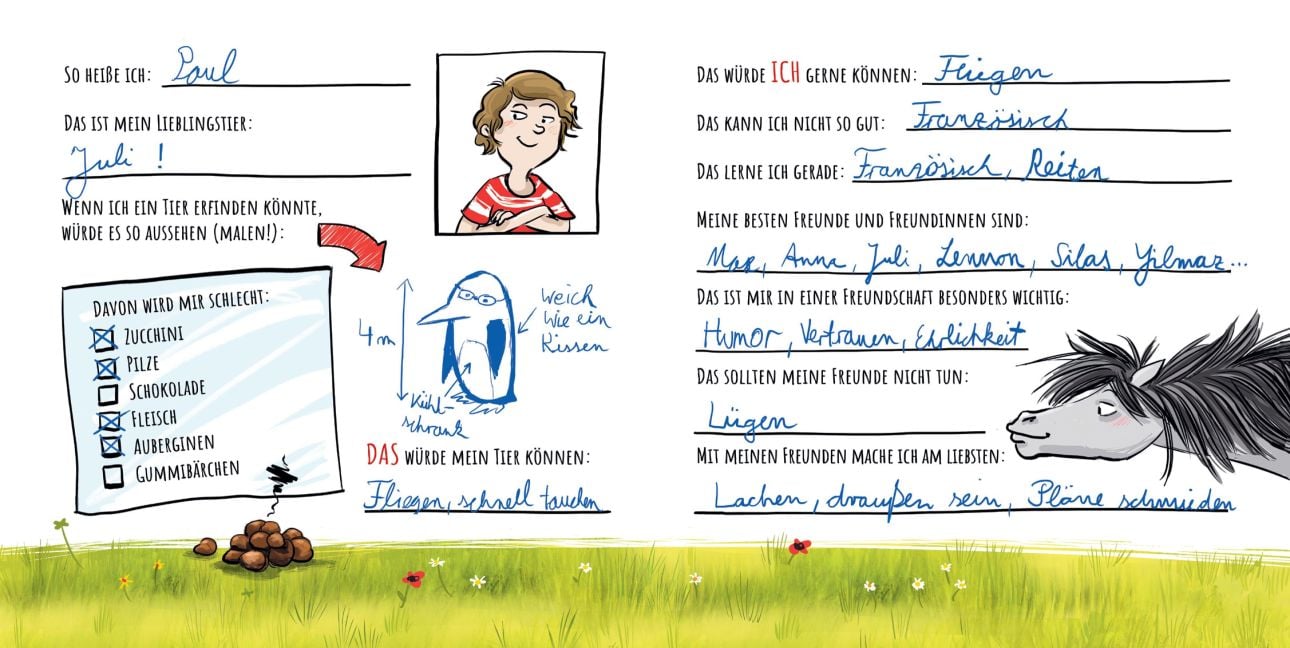 So heiße ich: Paul
Das ist mein Lieblingstier:
Juli !
Wenn ich ein Tier erfinden könnte,
würde es so aussehen (malen!):
Davon wird mir schlecht:
Zucchini
Pilze
Schokolade
Fleisch
Auberginen
Gummibärchen
4 m
weich
wie ein
Kissen
Kühl-
schrank
DAS würde mein Tier können:
Fliegen, schnell tauchen
Das würde ICH gerne können: Fliegen
Das kann ich nicht so gut: Französisch
Das lerne ich gerade: Französisch, Reiten
Meine besten Freunde und Freundinnen sind:
Max, Anna, Juli, Lennon, Silas, Yilmaz...
Das ist mir in einer Freundschaft besonders wichtig:
Humor, Vertrauen, Ehrlichkeit
Das sollten meine Freunde nicht tun:
Lügen
Mit meinen Freunden mache ich am liebsten:
Lachen, draußen sein, Pläne schmieden